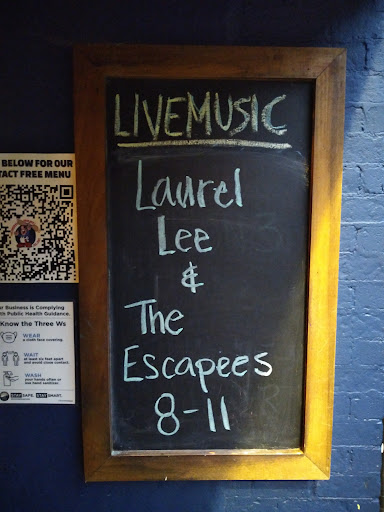 LIVE MUSIC
Laurel
Lee
&
The
Escapees
8-11
BELOW FOR OUR
TACT FREE MENU
r Business is Complying
th Public Health Guidance.
Know the Three Ws
WEAR
a cloth face covering.
WAIT
at least six feet apart
and avoid close contact.
WASH
your hands often or
use hand sanitizer.
STAY SAFE. STAY SMART.